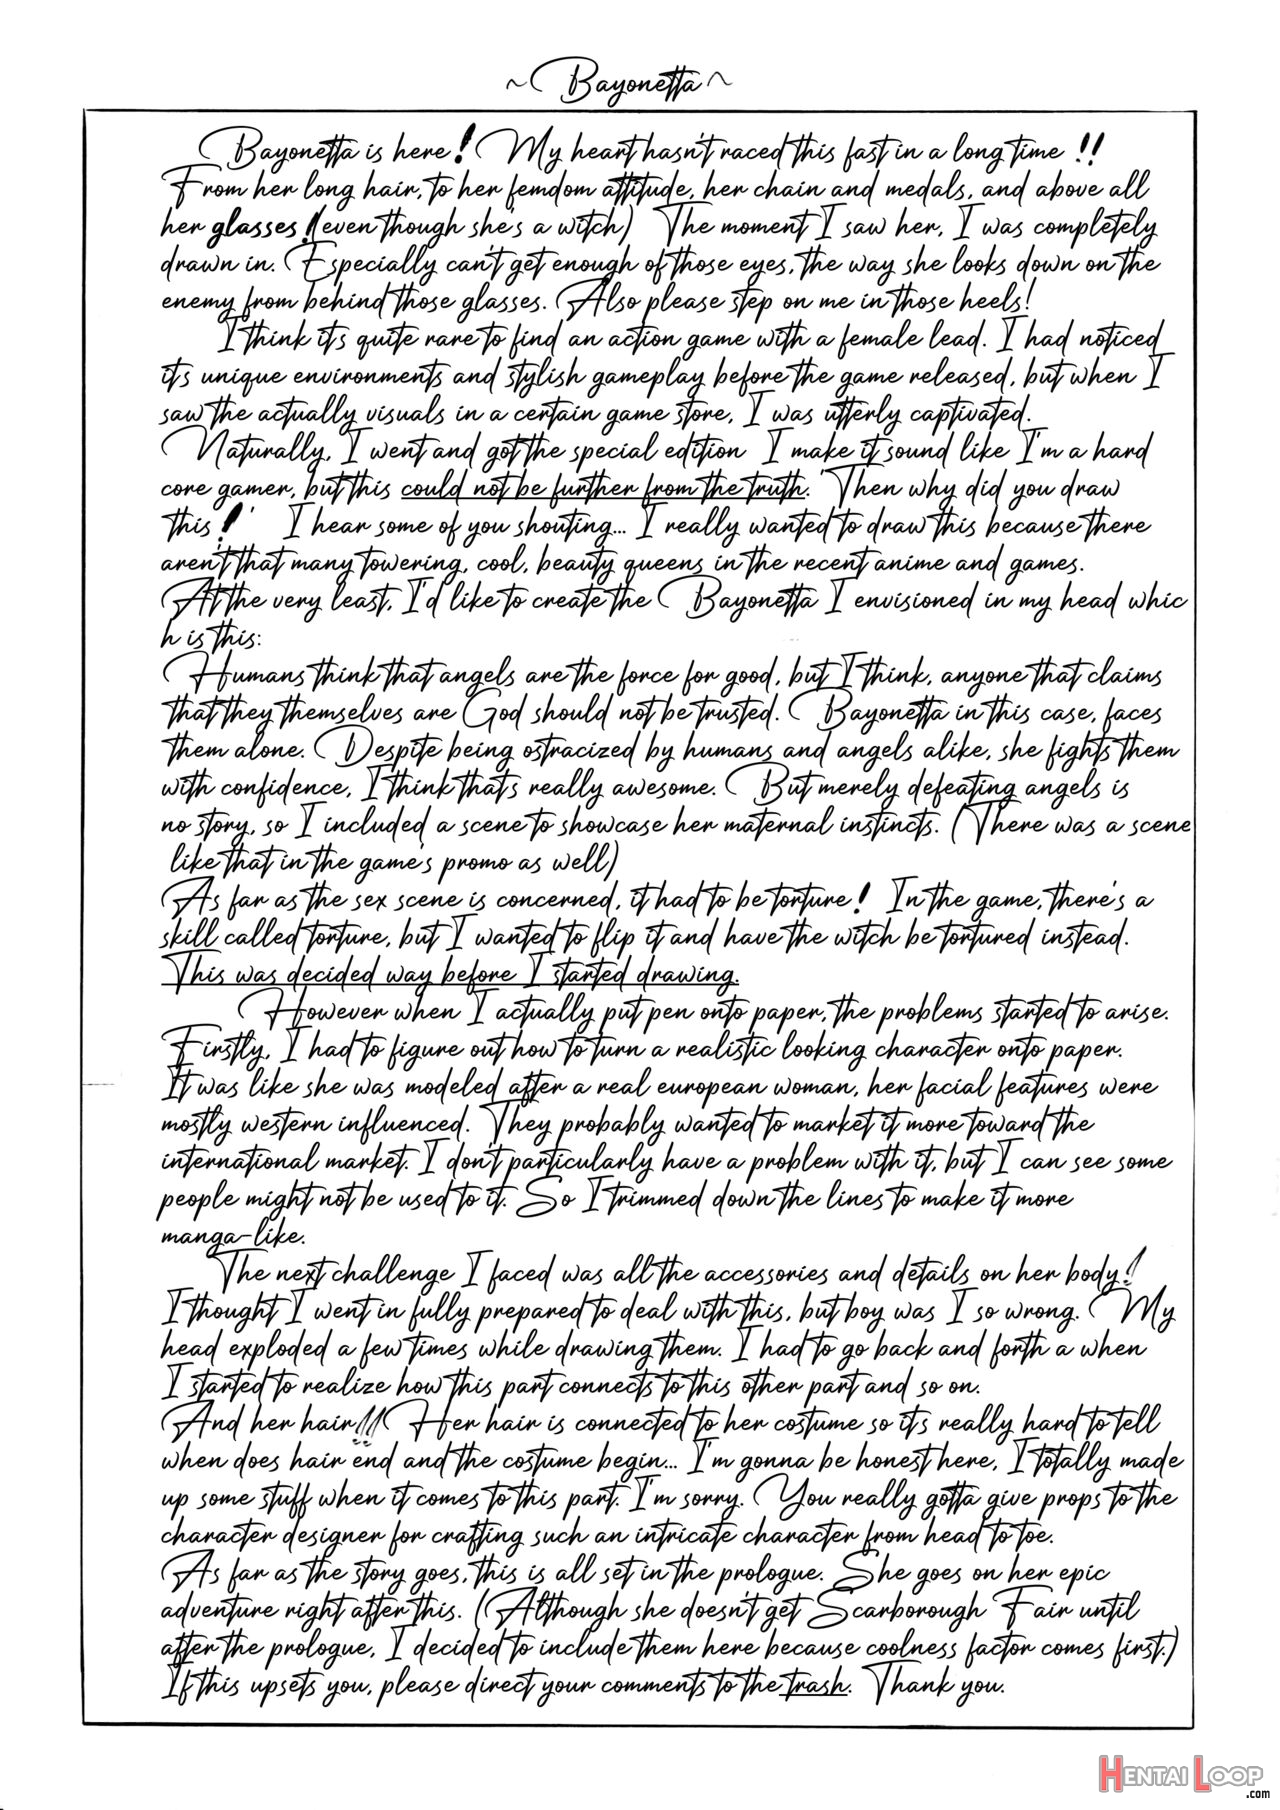 ~Bayonetta~
Bayonetta is here! My heart hasn't raced this fast in a long time !!
From her long hair, to her femdom attitude, her chain and medals, and above all
her glasses!(even though she's a witch) The moment I saw her, I was completely
drawn in. Especially can't get enough of those eyes, the way she looks down on the
enemy from behind those glasses. Also please step on me in those heels!
I think it's quite rare to find an action game with a female lead. I had noticed
it's unique environments and stylish gameplay before the game released, but when I
saw the actually visuals in a certain game store, I was utterly captivated.
Naturally, I went and got the special edition I make it sound like I'm a hard
core gamer, but this could not be further from the truth. 'Then why did you draw
this!' I hear some of you shouting... I really wanted to draw this because there
aren't that many towering, cool, beauty queens in the recent anime and games.
At the very least, I'd like to create the Bayonetta I envisioned in my head whic
h is this:
Humans think that angels are the force for good, but I think, anyone that claims
that they themselves are God should not be trusted. Bayonetta in this case, faces
them alone. Despite being ostracized by humans and angels alike, she fights them
with confidence, I think that's really awesome. But merely defeating angels is
no story, so I included a scene to showcase her maternal instincts. (There was a scene
like that in the game's promo as well)
As far as the sex scene is concerned, it had to be torture! In the game, there's a
skill called torture, but I wanted to flip it and have the witch be tortured instead.
This was decided way before I started drawing.
However when I actually put pen onto paper, the problems started to arise.
Firstly, I had to figure out how to turn a realistic looking character onto paper.
It was like she was modeled after a real european woman, her facial features were
mostly western influenced. They probably wanted to market it more toward the
international market. I don't particularly have a problem with it, but I can see some
people might not be used to it. So I trimmed down the lines to make it more
manga-like.
The next challenge I faced was all the accessories and details on her body!
I thought I went in fully prepared to deal with this, but boy was I so wrong. My
head exploded a few times while drawing them. I had to go back and forth a when
I started to realize how this part connects to this other part and so on.
And her hair!! Her hair is connected to her costume so it's really hard to tell
when does hair end and the costume begin... I'm gonna be honest here, I totally made
up some stuff when it comes to this part. I'm sorry. You really gotta give props to the
character designer for crafting such an intricate character from head to toe.
As far as the story goes, this is all set in the prologue. She goes on her epic
adventure right after this. (Although she doesn't get Scarborough Fair until
after the prologue, I decided to include them here because coolness factor comes first.)
If this upsets you, please direct your comments to the trash. Thank you.
HENTAI LOOP
.com